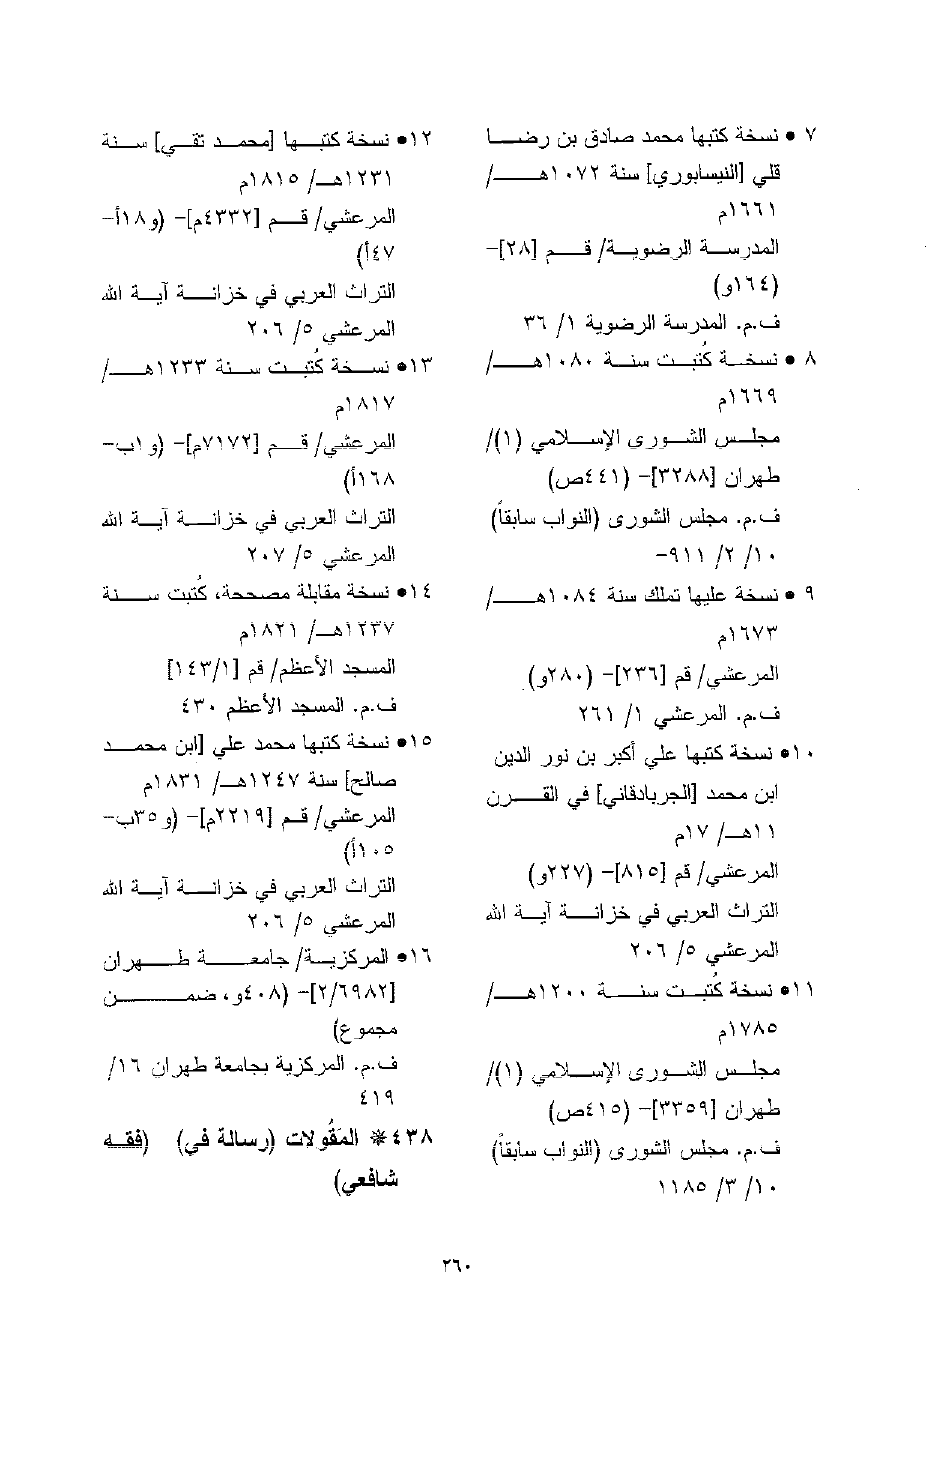 ٧ • نسخة كتبها محمد صادق بن رضا
قلي [النيسابوري] سنة ١٠٧٢هـ/
١٦٦١م
المدرسة الرضوية/ قم [٢٨]-
(١٦٤و)
ف.م. المدرسة الرضوية ١/ ٣٦
٨ • نسخة كُتبت سنة ١٠٨٠هـ/
١٦٦٩م
مجلس الشورى الإسلامي (١)/
طهران [٣٢٨٨]- (٤٤١ص)
ف.م. مجلس الشورى (النواب سابقاً)
١٠/ ٢/ ٩١١-
٩ • نسخة عليها تملك سنة ١٠٨٤هـ/
١٦٧٣م
المرعشي/ قم [٢٣٦]- (٢٨٠و)
ف.م. المرعشي ١/ ٢٦١
١٠• نسخة كتبها علي أكبر بن نور الدين
ابن محمد [الجربادقاني] في القرن
١١هـ/ ١٧م
المرعشي/ قم [٨١٥]- (٢٢٧و)
التراث العربي في خزانة آية الله
المرعشي ٥/ ٢٠٦
١١• نسخة كُتبت سنة ١٢٠٠هـ/
١٧٨٥م
مجلس الشورى الإسلامي (١)/
طهران [٣٣٥٩]- (٤١٥ص)
ف.م. مجلس الشورى (النواب سابقاً)
١٠/ ٣/ ١١٨٥
١٢• نسخة كتبها [محمد تقي] سنة
١٢٣١هـ/ ١٨١٥م
المرعشي/ قم [٤٣٣٢م]- (و١٨أ-
٤٧أ)
التراث العربي في خزانة آية الله
المرعشي ٥/ ٢٠٦
١٣• نسخة كُتبت سنة ١٢٣٣هـ/
١٨١٧م
المرعشي/ قم [٧١٧٢م]- (و١ب-
١٦٨أ)
التراث العربي في خزانة آية الله
المرعشي ٥/ ٢٠٧
١٤• نسخة مقابلة مصححة، كُتبت سنة
١٢٣٧هـ/ ١٨٢١م
المسجد الأعظم/ قم [١٤٣/١]
ف.م. المسجد الأعظم ٤٣٠
١٥• نسخة كتبها محمد علي [ابن محمد
صالح] سنة ١٢٤٧هـ/ ١٨٣١م
المرعشي/ قم [٢٢١٩م]- (و٣٥ب-
١٠٥أ)
التراث العربي في خزانة آية الله
المرعشي ٥/ ٢٠٦
١٦• المركزية/ جامعة طهران
[٢/٦٩٨٢]- (٤٠٨و، ضمن
مجموع)
ف.م. المركزية بجامعة طهران ١٦/
٤١٩
٤٣٨* المَقُولات (رسالة في) (فقه
شافعي)
٢٦٠